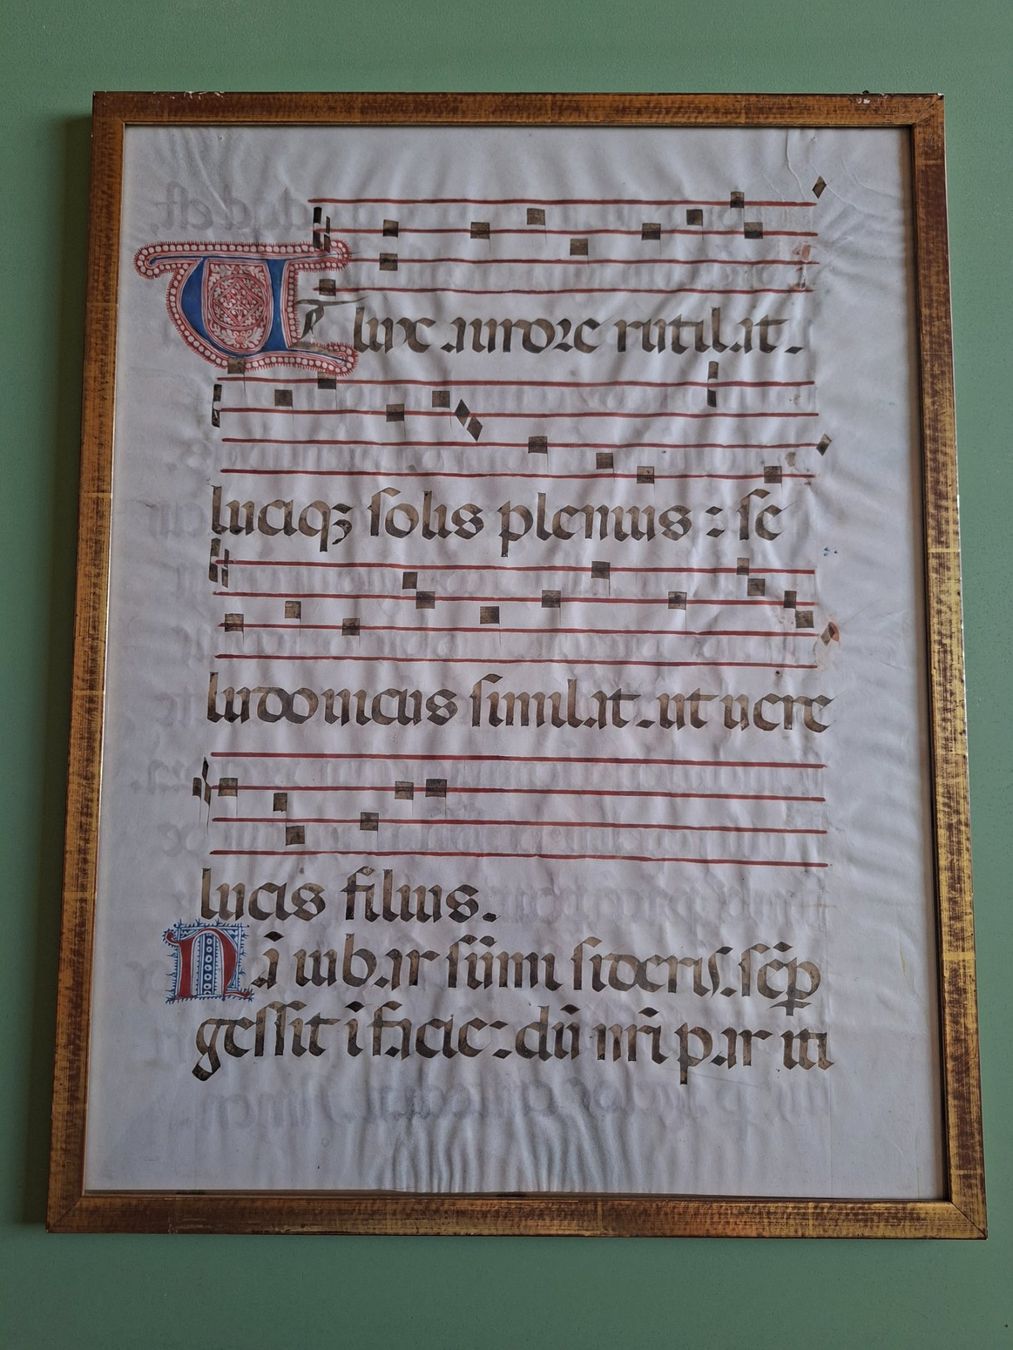 TE lux aurore rutilat.
lucisqꝫ solis plenius : se
ludovicus similat. ut vere
lucis filius.
Nā iubar sūmi sideris. sēꝑ
gessit ī facie : dū nr̄i par iti